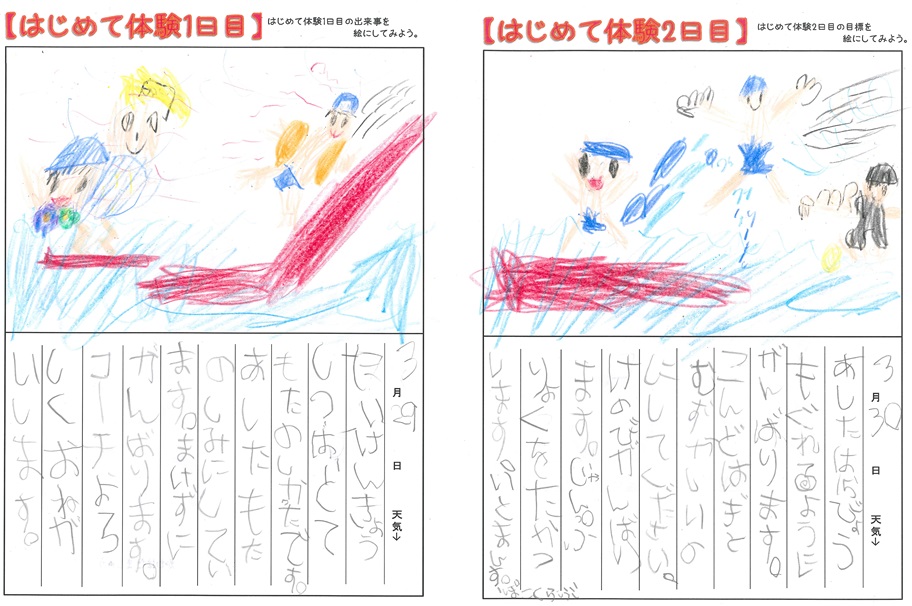 【はじめて体験1日目】
はじめて体験1日目の出来事を
絵にしてみよう。
3月29日 天気↓
たいけんきょう
しつはとて
もたのしかたです。
あしたもた
のしみにしてい
ます。まけずに
がんばります。
コーチよろ
しくおねが
いします。
【はじめて体験2日目】
はじめて体験2日目の目標を
絵にしてみよう。
3月30日 天気↓
あしたは5びょう
もぐれるように
がんばります。
こんどはぎと
むずかしいの
にしてください。
けのびがんばり
ます。じゃんぷ
りょくをたかつ
います。